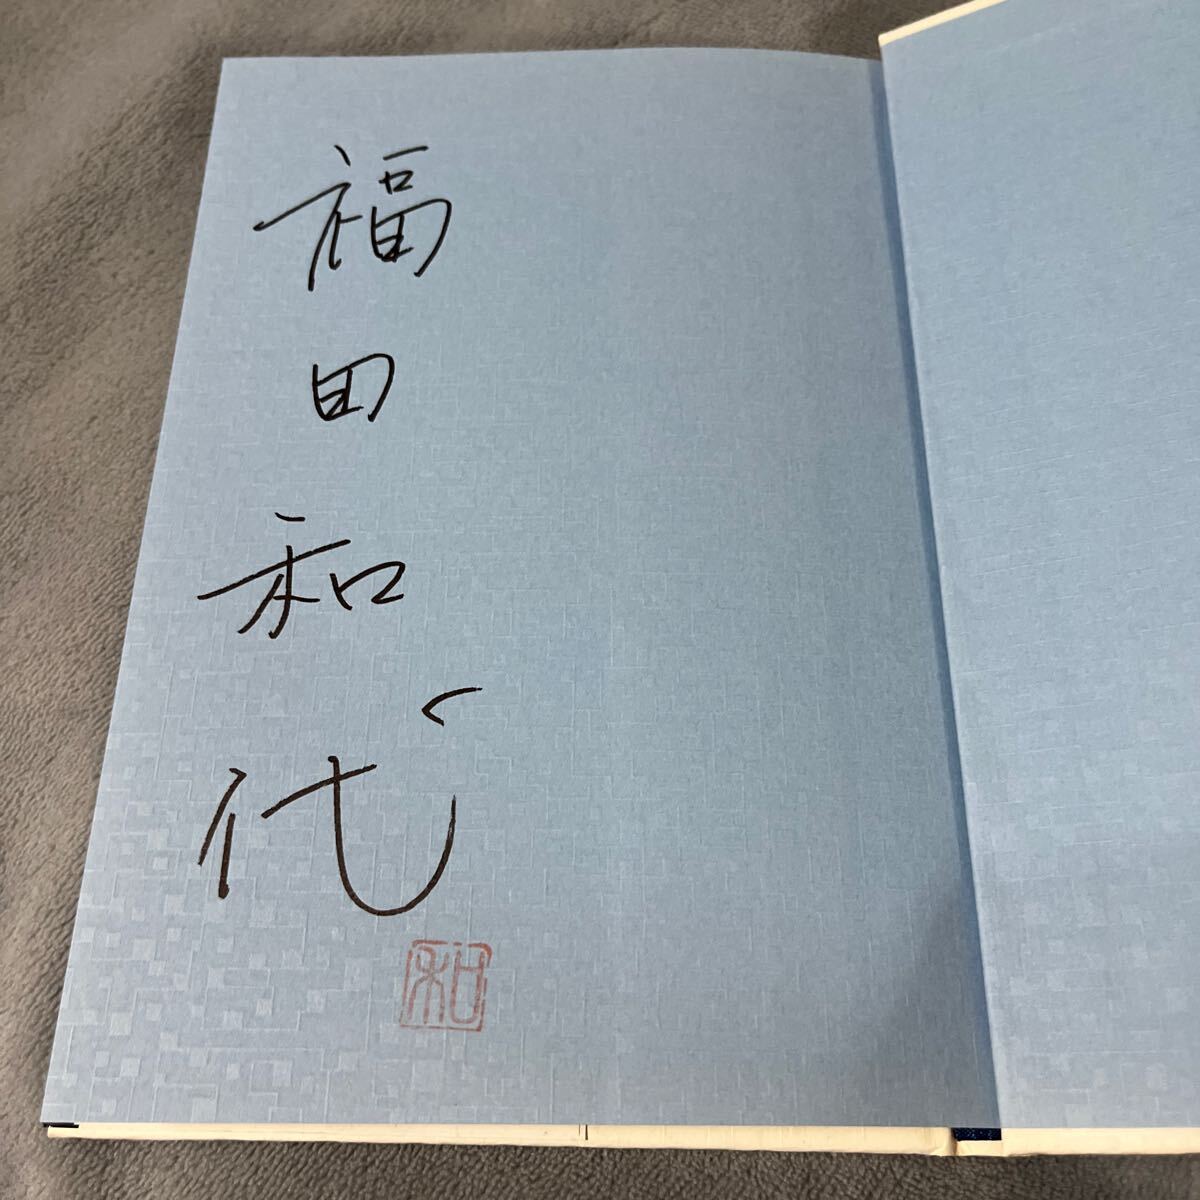 福田和代
和